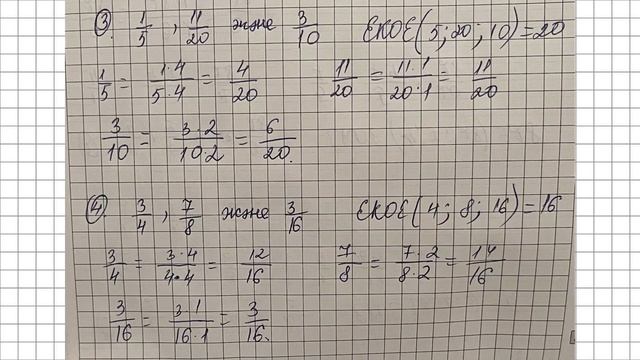 ③ 1/5 , 11/20 және 3/10 ЕКОЕ(5; 20; 10)=20
1/5 = 1·4/5·4 = 4/20 11/20 = 11·1/20·1 = 11/20
3/10 = 3·2/10·2 = 6/20.
④ 3/4 , 7/8 және 3/16 ЕКОЕ(4; 8; 16)=16
3/4 = 3·4/4·4 = 12/16 7/8 = 7·2/8·2 = 14/16
3/16 = 3·1/16·1 = 3/16.